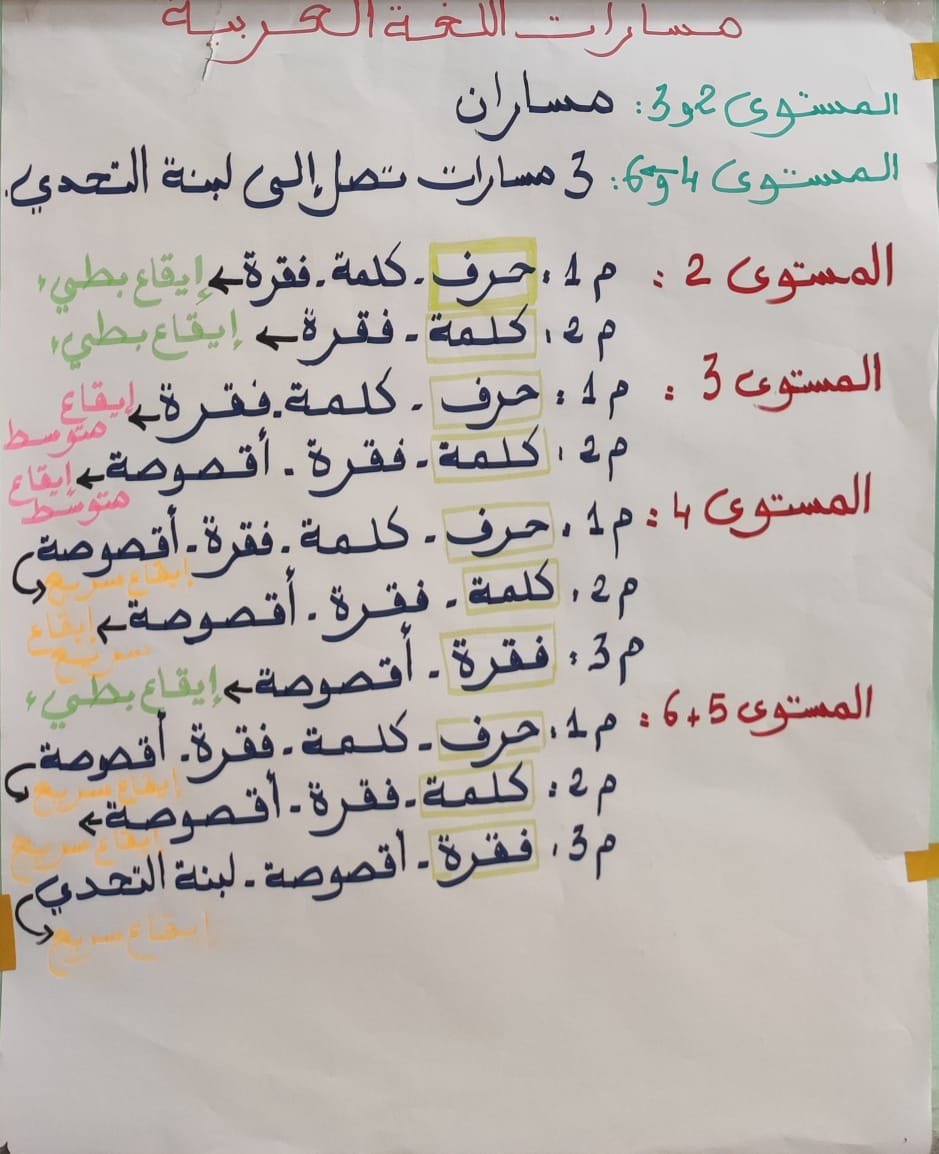 مسارات اللغة العربية
المستوى 2 و 3: مساران
المستوى 4 و 6: 3 مسارات تصل إلى لبنة التحدي.
المستوى 2: م 1: حرف - كلمة - فقرة ← إيقاع بطيء
م 2: كلمة - فقرة ← إيقاع بطيء
المستوى 3: م 1: حرف - كلمة - فقرة ← إيقاع متوسط
م 2: كلمة - فقرة - أقصوصة ← إيقاع متوسط
المستوى 4: م 1: حرف - كلمة - فقرة - أقصوصة إيقاع سريع
م 2: كلمة - فقرة - أقصوصة ← إيقاع سريع
م 3: فقرة - أقصوصة ← إيقاع بطيء
المستوى 5 + 6: م 1: حرف - كلمة - فقرة - أقصوصة إيقاع سريع
م 2: كلمة - فقرة - أقصوصة ← إيقاع سريع
م 3: فقرة - أقصوصة - لبنة التحدي إيقاع سريع